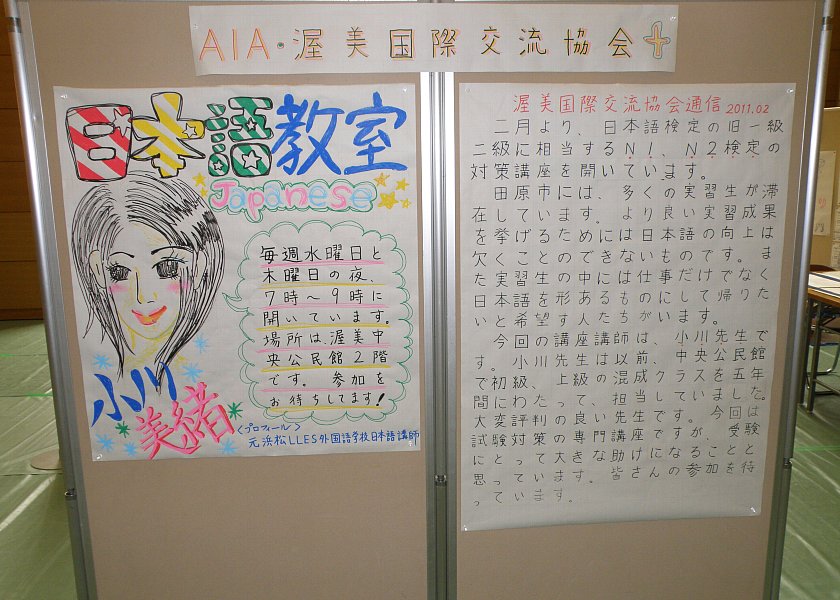 AIA・渥美国際交流協会
日本語教室
Japanese
毎週水曜日と
木曜日の夜、
7時～9時に
開いています。
場所は、渥美中
央公民館2階
です。参加を
お待ちしてます!
小川
美緒
<プロフィール>
元浜松LLES外国語学校日本語講師
渥美国際交流協会通信 2011.02
二月より、日本語検定の旧一級
二級に相当するN1、N2検定の
対策講座を開いています。
田原市には、多くの実習生が滞
在しています。より良い実習成果
を挙げるためには日本語の向上は
欠くことのできないものです。ま
た実習生の中には仕事だけでなく
日本語を形あるものにして帰りた
いと希望す人たちがいます。
今回の講座講師は、小川先生で
す。小川先生は以前、中央公民館
で初級、上級の混成クラスを五年
間にわたって、担当していました。
大変評判の良い先生です。今回は
試験対策の専門講座ですが、受験
にとって大きな助けになることと
思っています。皆さんの参加を待
っています。